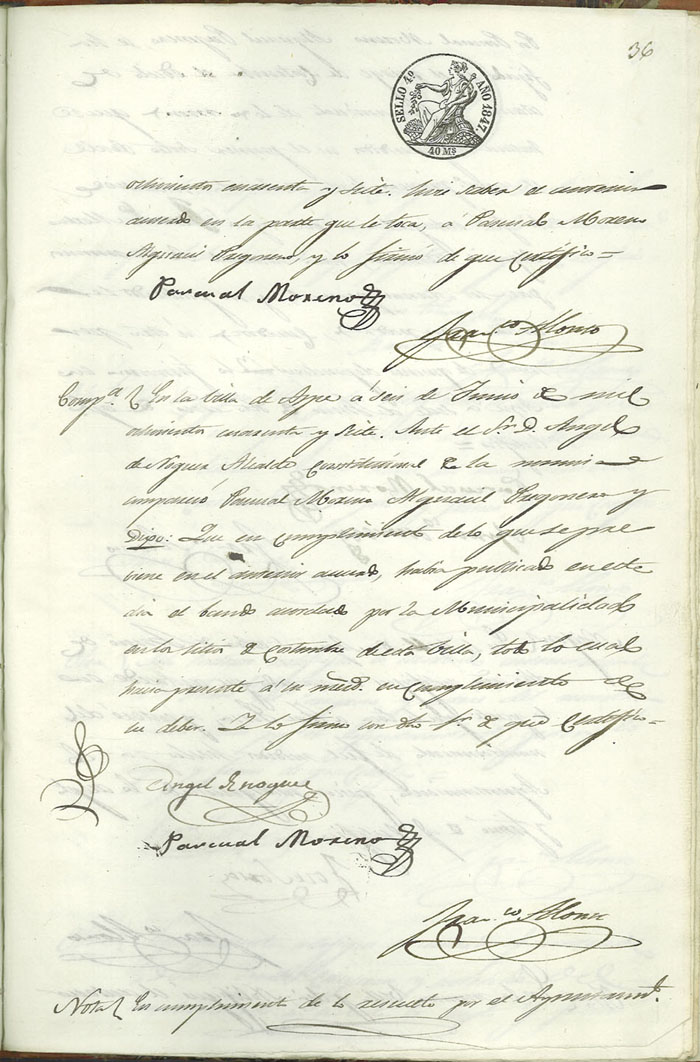 36
SELLO 4º AÑO 1847.
40 Ms
ochocientos cuarenta y siete. hice saber el anterior
acuerdo en la parte que le toca, a Pascual Moreno
Alguacil Pregonero, y lo firmó de que certifico =
Pascual Moreno
Franco Alonso
Compa. En la Villa de Aspe á seis de Junio de mil
ochocientos cuarenta y siete. Ante el Sr. D. Angel
de Noguer Alcalde Constitucional de la misma
compareció Pascual Moreno Alguacil Pregonero y
Dixo: Que en cumplimiento de lo que se pre
viene en el anterior acuerdo, habia publicado en este
dia el bando acordado por la Municipalidad
en los sitios de costumbre de esta Villa, todo lo cual
hacia presente á su mrd. en cumplimiento de
su deber. Y lo firmo con dho Sr. de que Certifico =
Angel Enoguer
Pascual Moreno
Franco Alonso
Nota En cumplimiento de lo resuelto por el Ayuntamto.